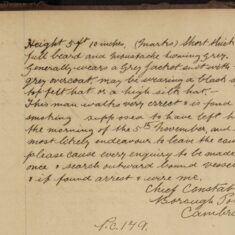 Height 5 ft 10 inches, (marks) Short thick
full beard and moustache turning Grey,
Generally wears a Grey Jacket suit with
grey overcoat, may be wearing a black s
top felt hat or a high silk hat.—
This man walks very errect & is fond
smoking supposed to have left h
the morning of the 5th November, and
most likely endeavour to leave the cou
please cause every enquiry to be made
once & search outward bound vesse
& if found arrest & wire me.
Chief Constab
Borough To
Cambr
P.C. 149.